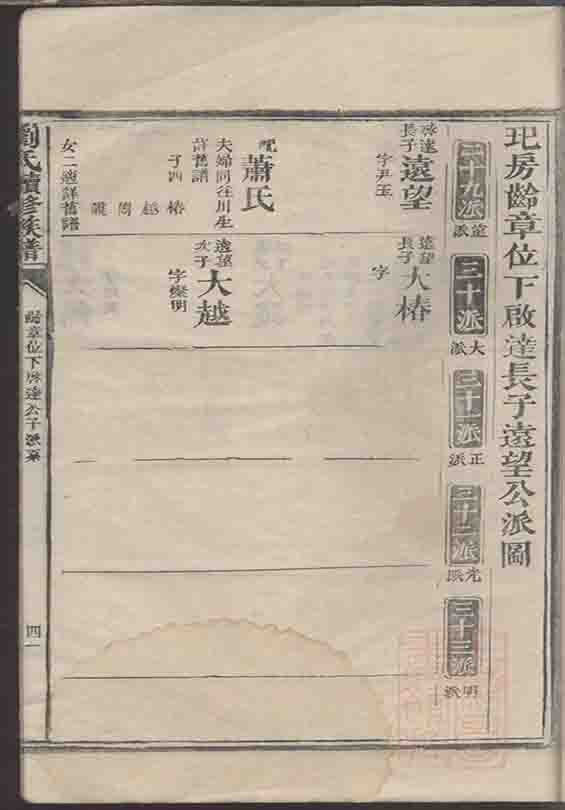 圯房齡章位下啟達長子遠望公派圖
二十九派
遠派
三十派
大派
三十一派
正派
三十二派
光派
三十三派
明派
啟達長子遠望
字尹玉
配蕭氏
夫婦同在川生
詳舊譜
子四
椿
越
女二適詳舊譜
遠望長子大椿
字
遠望次子大越
字燦明
劉氏續修族譜
齡章位下啓達公子派系
四一